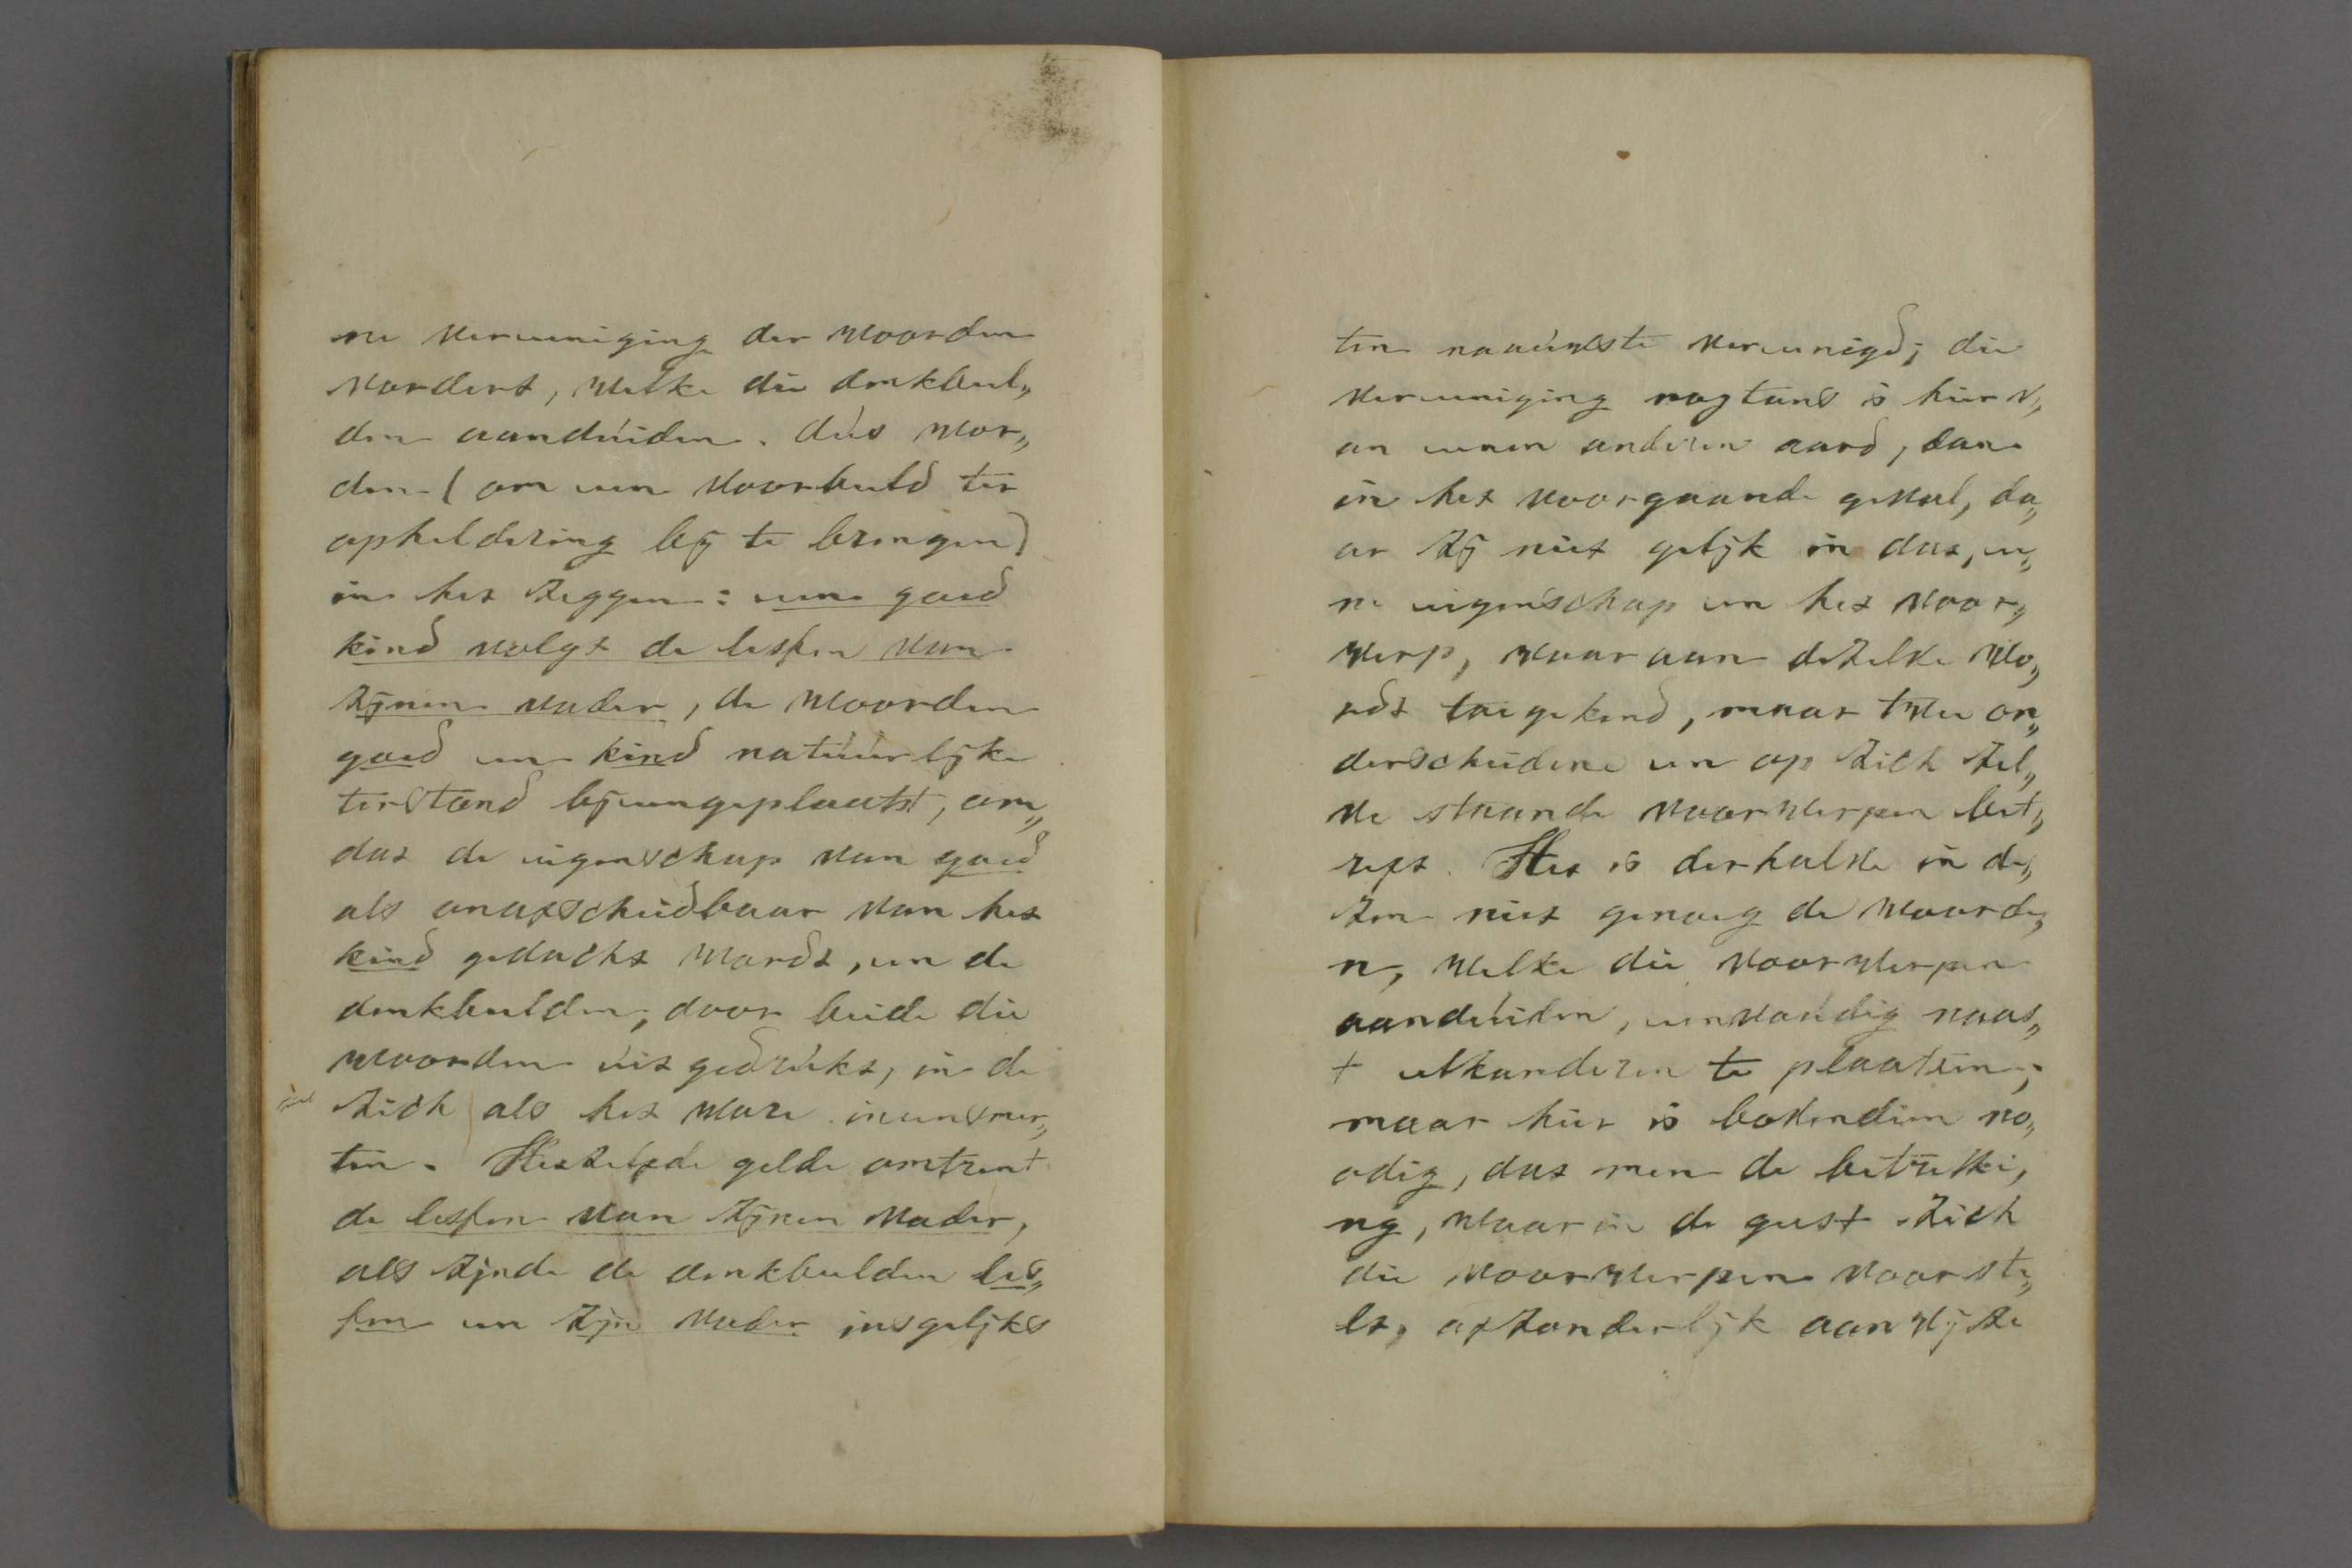 ne vereeniging der woorden
vordert, welke die denkbeel„
den aanduiden. dus wor„
den (om een voorbeeld ter
opheldering bij te brengen)
in het zeggen: een goed
kind volgt de lessen van
zijnen vader, de woorden
goed en kind natuurlijke
terstond bijeengeplaatst, om„
dat de eigenschap van goed
als onafscheidbaar van het
kind gedacht wordt, en de
denkbeelden, door beide die
woorden uitgedrukt, in de
zich als het ware ineensmer„
ten. Hetzelfde gelde omtrent
de lessen van zijnen vader,
als zijnde de denkbeelden les„
sen en zijn vader insgelijks
ten naauwste vereenigd; die
vereeniging nogtans is hier v„
an eenen anderen aard, dan
in het voorgaande geval, da„
ar zij niet gelijk in dat, ee„
ne eigenschap en het voor„
werp, waar aan dezelve wo„
rdt toegekend, maar twee on„
derscheidene en op zich zel„
ve staande voorwerpen bet„
reft. Het is derhalve in de„
zen niet genoeg de woorde„
n, welke die voorwerpen
aanduiden, eenvoudig naas„
t elkanderen te plaatsen;
maar hier is bovendien no„
odig, dat men de betrekki„
ng, waar in de geest zich
die voorwerpen voorste„
lt, afzonderlijk aanwijze